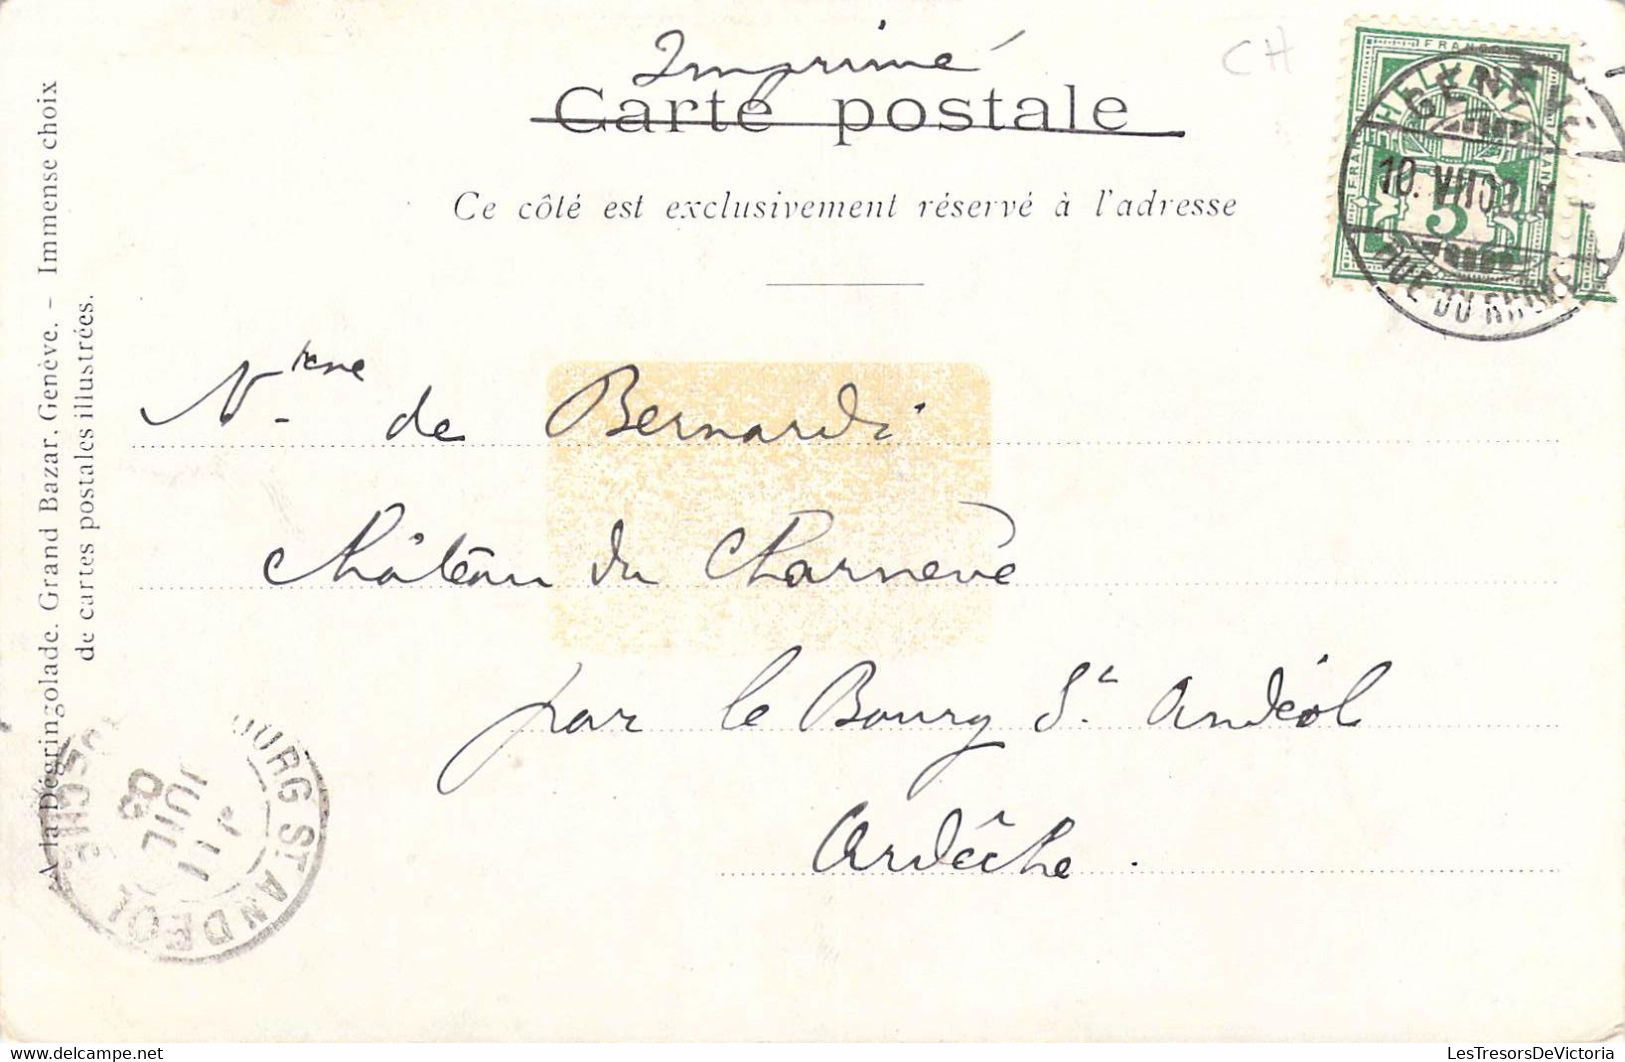 Imprimé
CH
Carte postale
Ce côté est exclusivement réservé à l'adresse
FRANCO
HELVETIA
FRANCO
5
GENÈVE
10. VII 02. X
RUE DU RHONE
Vtesse de Bernardi
Château du Charnève
par le Bourg St Andéol
Ardèche.
A la Dégringolade. Grand Bazar, Genève. – Immense choix
de cartes postales illustrées.
BOURG ST ANDEOL
11
JUIL
ARDECHE
LesTresorsDeVictoria
www.delcampe.net